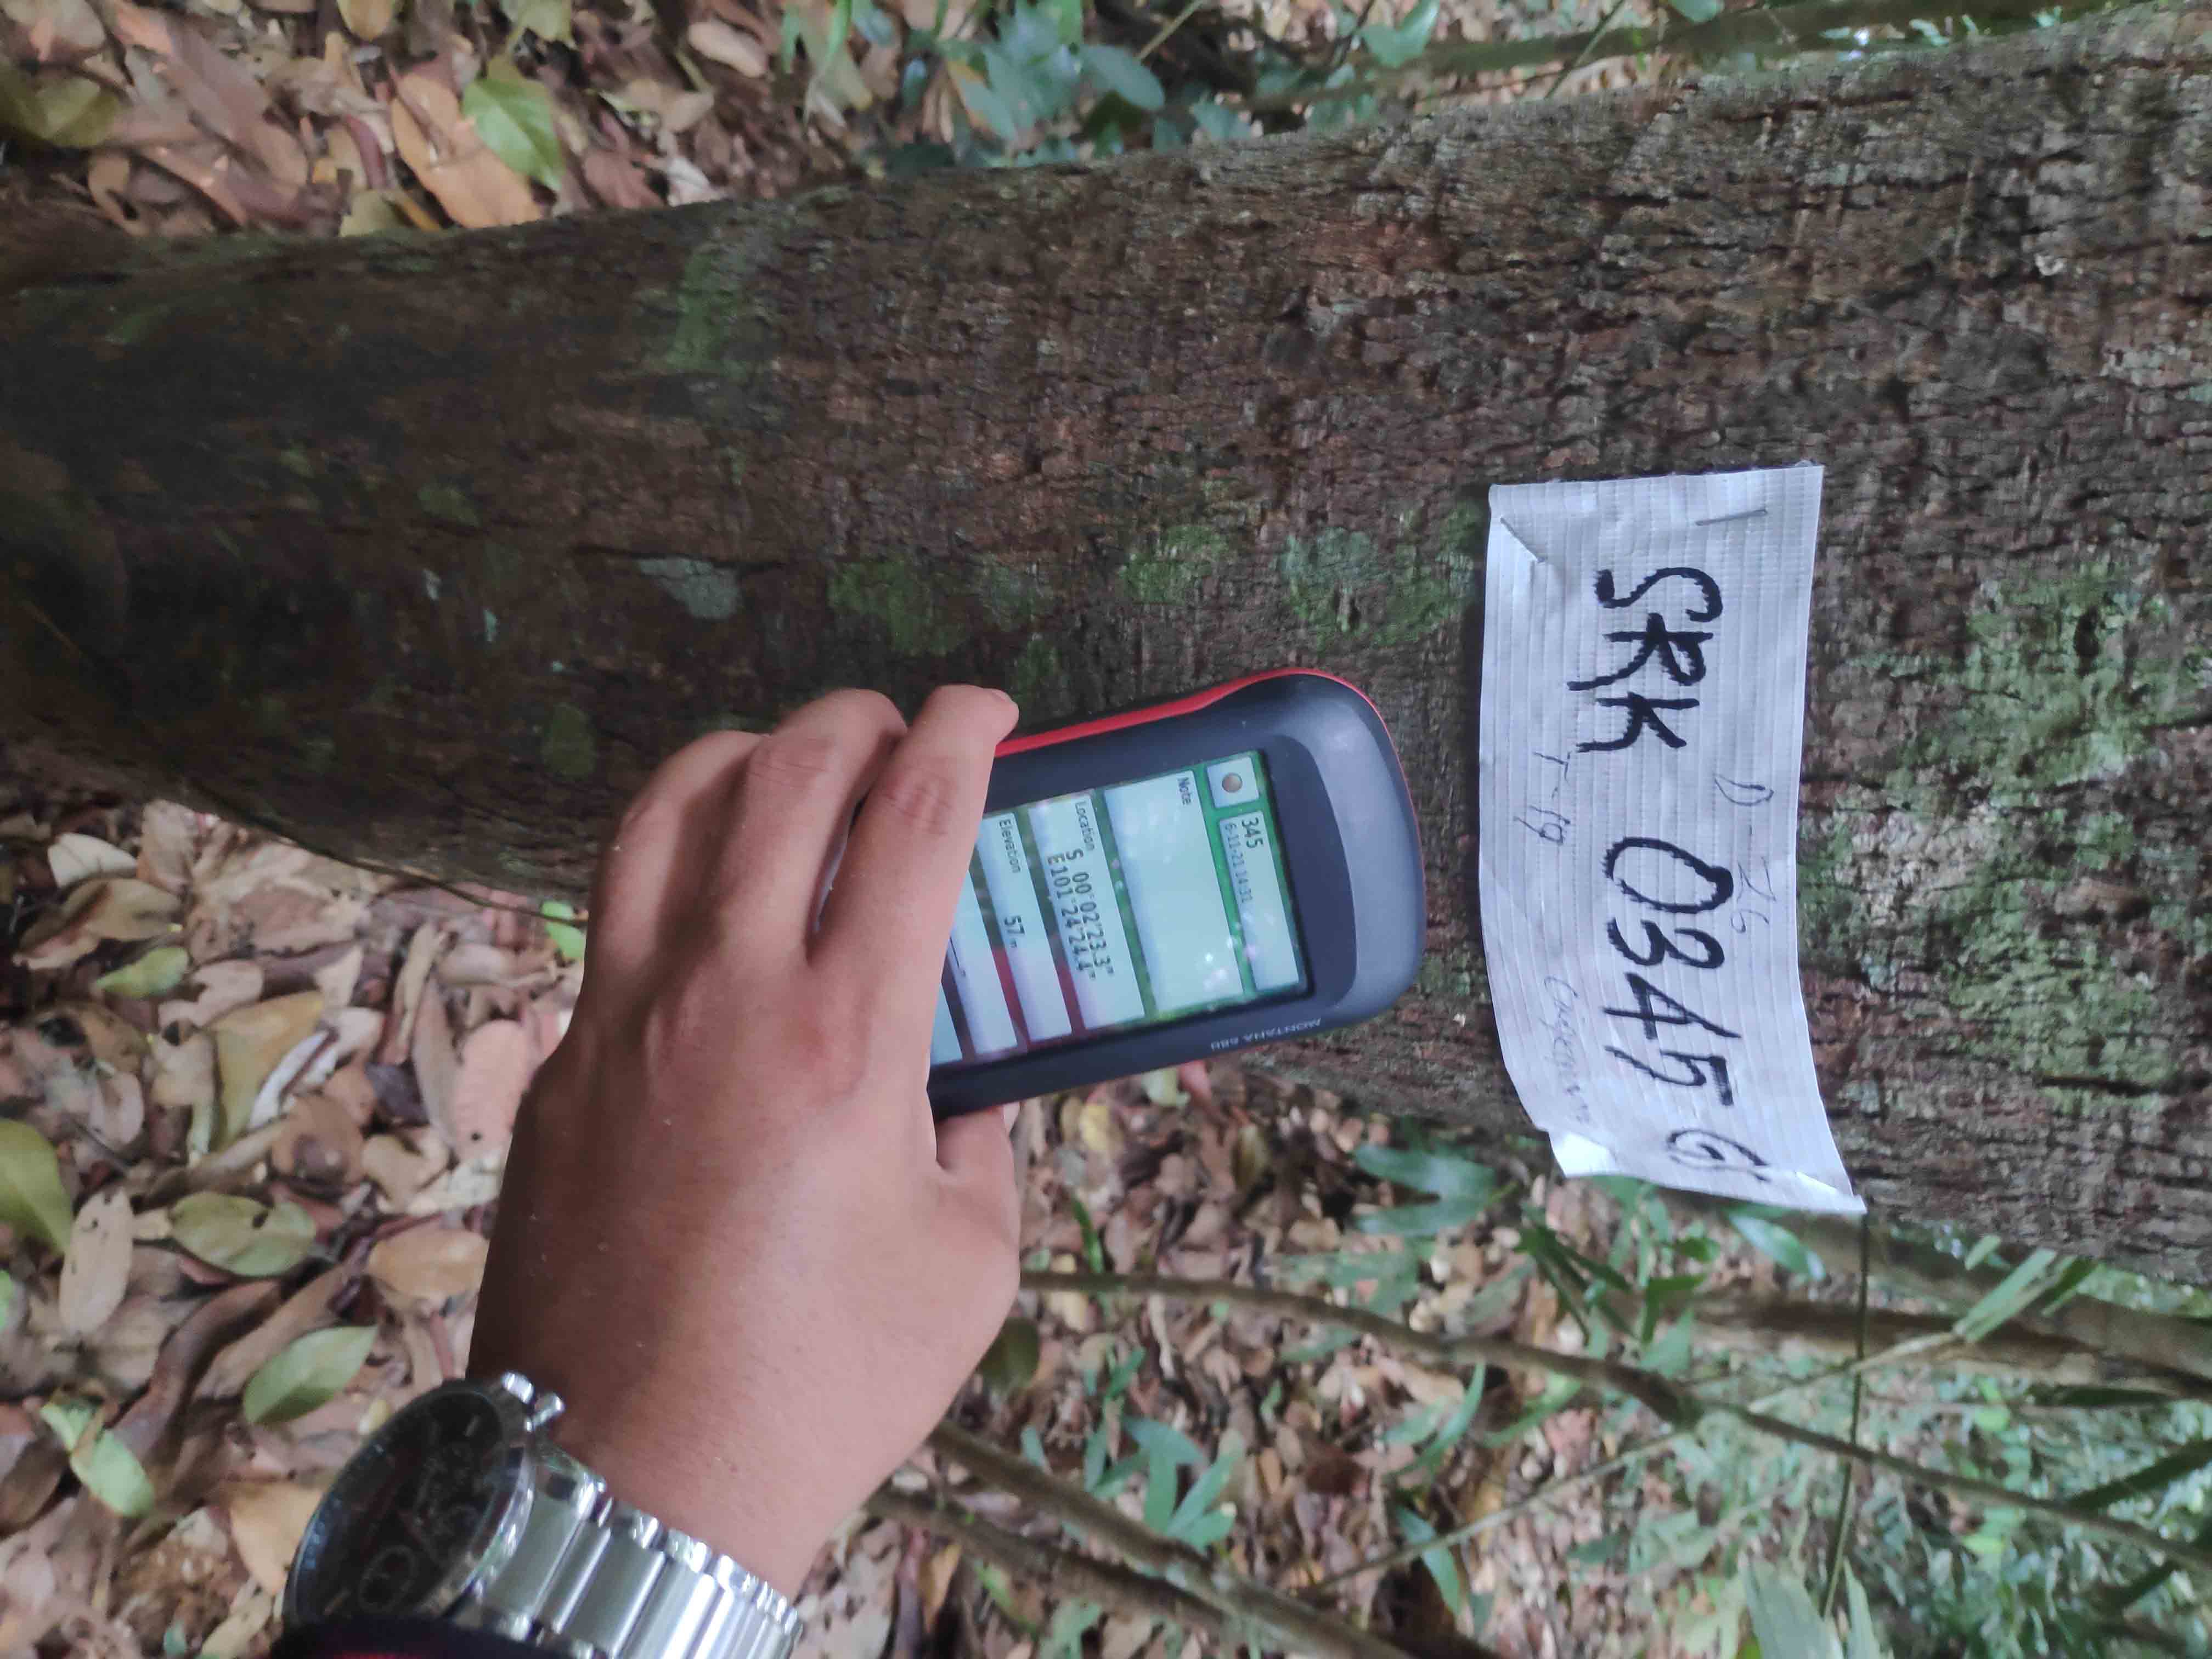 D-26
SRK 0345
T-19
345
6-11-21 14:31
Note
Location
S 00°02'23.3"
E101°24'24.4"
Elevation
57 m